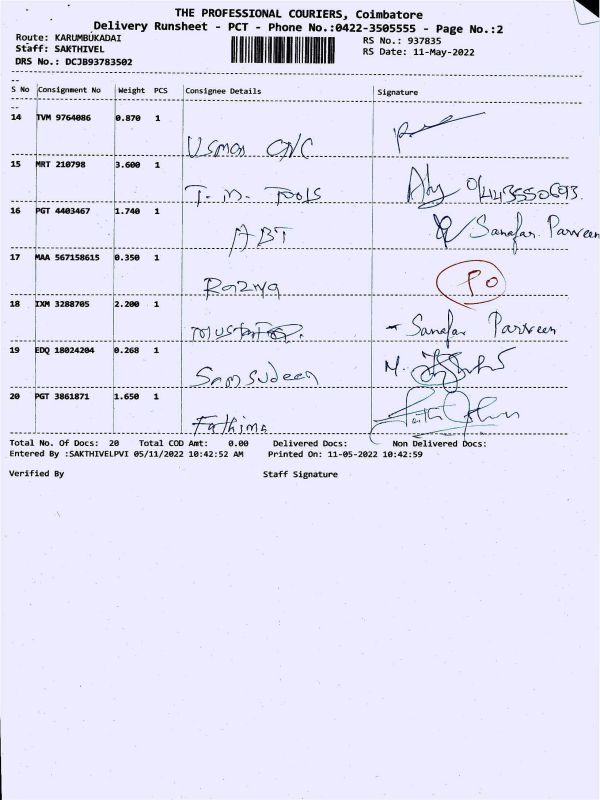 THE PROFESSIONAL COURIERS, Coimbatore
Delivery Runsheet - PCT - Phone No.:0422-3505555 - Page No.:2
Route: KARUMBUKADAI
RS No.: 937835
Staff: SAKTHIVEL
RS Date: 11-May-2022
DRS No.: DCJB93783502
S No Consignment No Weight PCS Consignee Details Signature
14 TVM 9764086 0.870 1
Usman CNC
15 MRT 210798 3.600 1
T. M. TOOLS
16 PGT 4403467 1.740 1
ABT Sanafar Parveen
17 MAA 567158615 0.350 1
Razwa PO
18 IXM 3288705 2.200 1
Sanafar Parveen
19 EDQ 18024204 0.268 1
Samsudeen M.
20 PGT 3861871 1.650 1
Fathima
Total No. Of Docs: 20 Total COD Amt: 0.00 Delivered Docs: Non Delivered Docs:
Entered By :SAKTHIVELPVI 05/11/2022 10:42:52 AM Printed On: 11-05-2022 10:42:59
Verified By Staff Signature